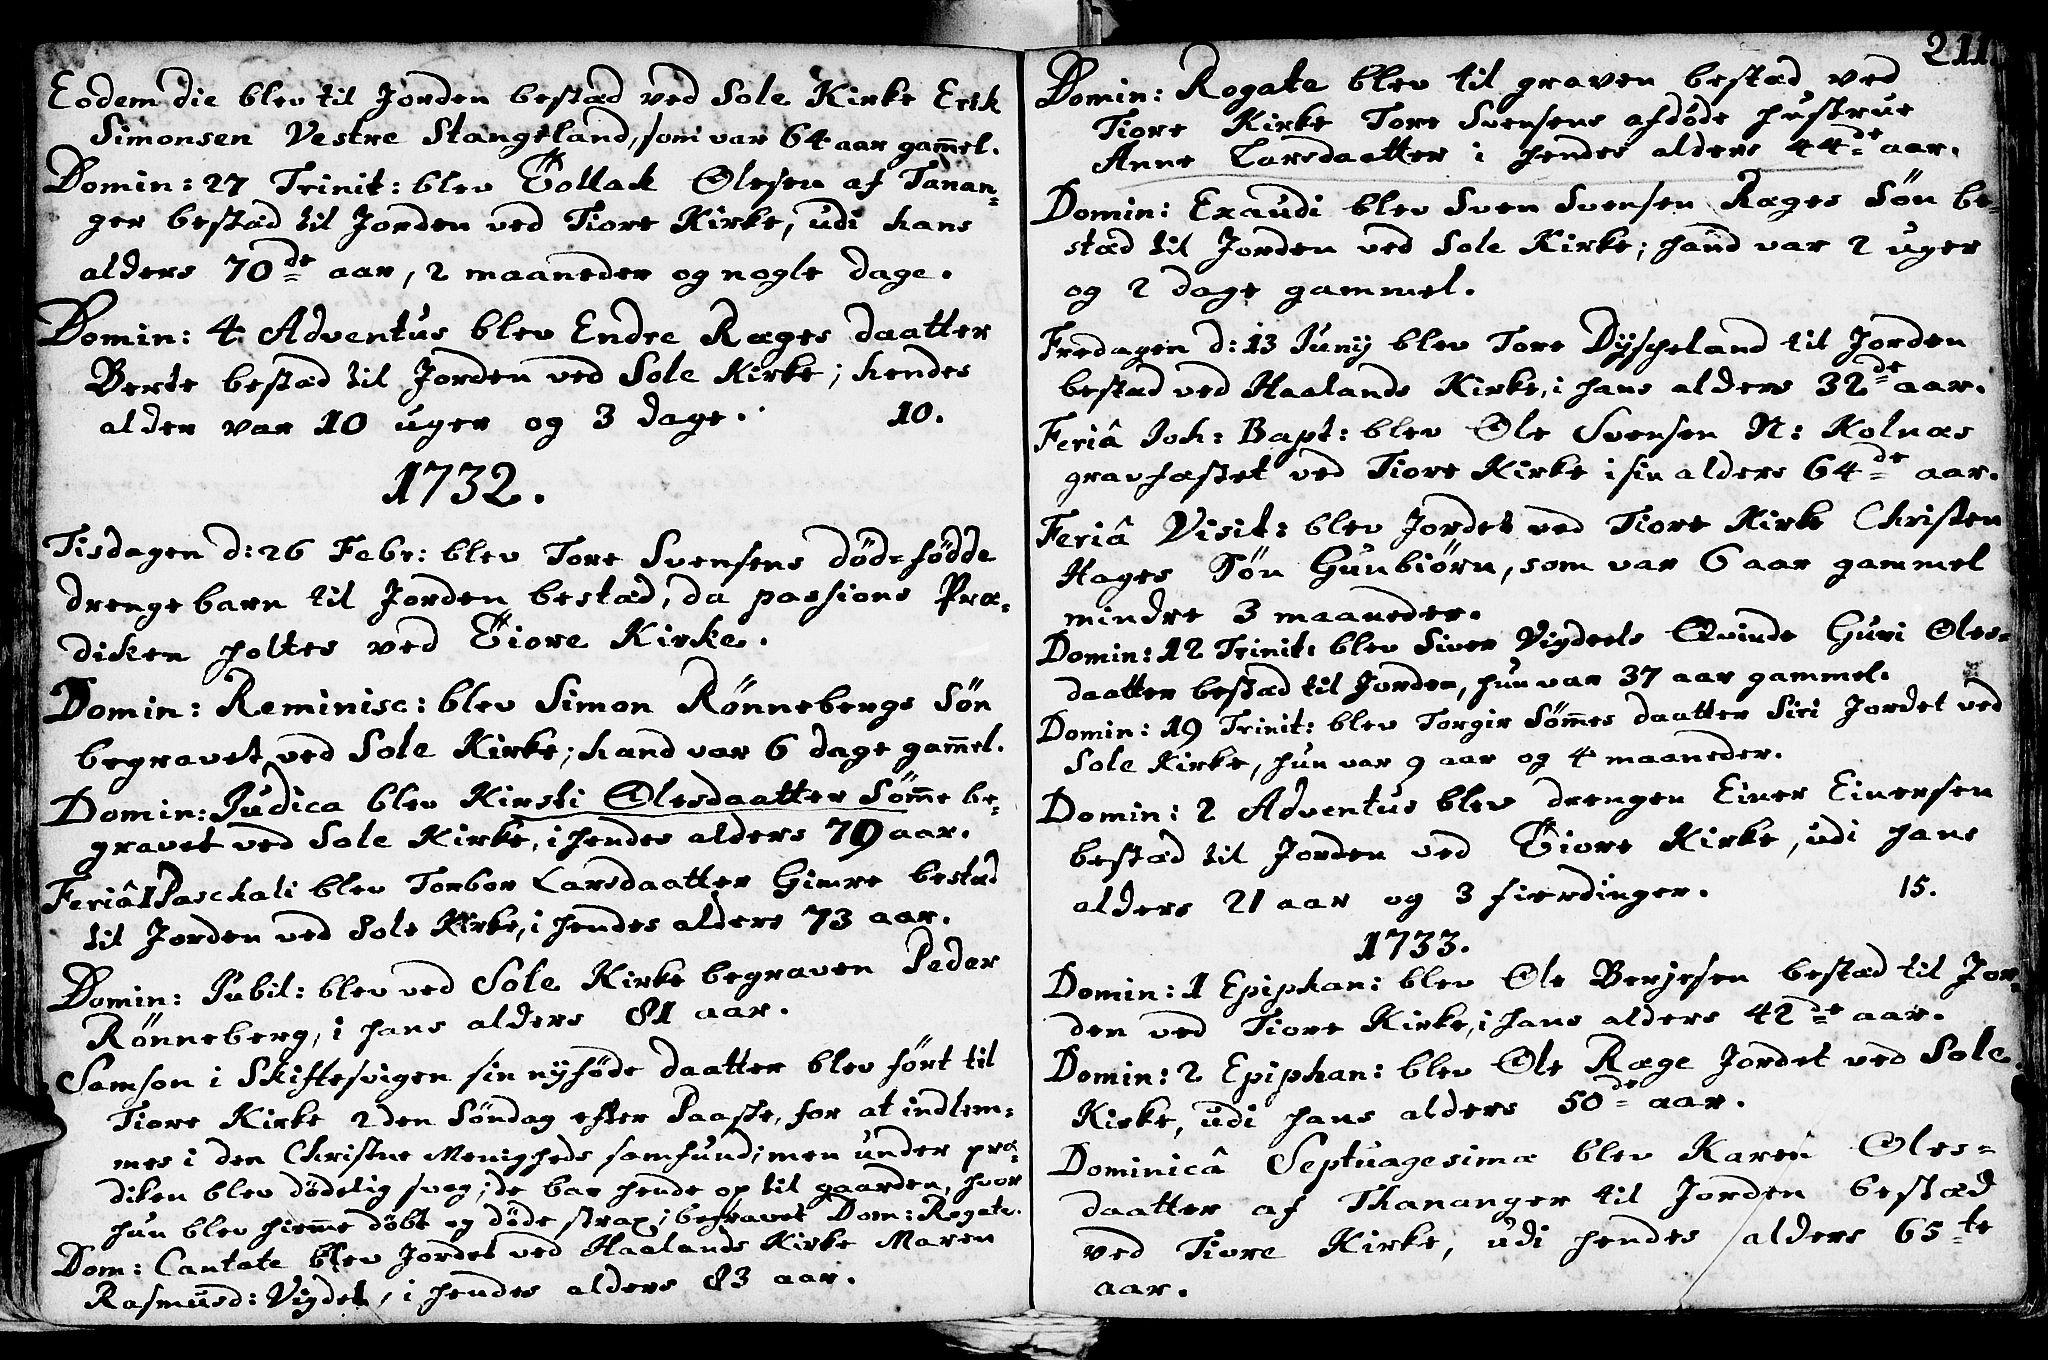 Eodem die blev til Jorden bestæd ved Sole Kirke Erik
Simonsen Vestre Stangeland, som var 64 aar gam̄el.
Domin: 27 Trinit: blev Tollack Olesen af Tanan-
ger bestæd til Jorden ved Tiore Kirke, udi hans
alders 70de aar, 2 maaneder og nogle dage.
Domin: 4 Adventus blev Endre Ræges daatter
Berte bestæd til Jorden ved Sole Kirke; hendes
alder var 10 uger og 3 dage. 10.
1732.
Tisdagen d: 26 Febr: blev Tore Svensens dödfödde
drengebarn til Jorden bestæd, da passions Præ-
diken holtes ved Tiore Kirke.
Domin: Reminisc: blev Simon Rönnebergs Sön
begravet ved Sole Kirke; hand var 6 dage gam̄el.
Domin: Judica blev Kirsti Olesdaatter Söm̄e be-
gravet ved Sole Kirke, i hendes alders 79 aar.
Feriâ 1 Paschali blev Torbor Larsdaatter Gimre bestæd
til Jorden ved Sole Kirke, i hendes alders 73 aar.
Domin: Jubil: blev ved Sole Kirke begraven Peder
Rönneberg, i hans alders 81 aar.
Samson i Skiftesvigen sin nyföde daatter blev fört til
Tiore Kirke 2den Söndag efter Paaske, for at indlem-
mes i den Christne Menigheds samfund; men under præ-
diken blev dödelig svag; de bar hende op til gaarden, hvor
hun blev hiem̄e döbt og döde strax; begravet Dom: Rogate.
Dom: Cantate blev Jordet ved Haalands Kirke Maren
Rasmusd: Vigdel, i hendes alders 83 aar.
211
Domin: Rogate blev til graven bestæd ved
Tiore Kirke Tore Svensens afdöde hustrue
Anne Larsdaatter i hendes alders 44de aar.
Domin: Exaudi blev Sven Svensen Ræges Sön be-
stæd til Jorden ved Sole Kirke; hand var 2 uger
og 2 dage gammel.
Fredagen d: 13 Junij blev Tore Dysheland til Jorden
bestæd ved Haalands Kirke, i hans alders 32de aar.
Feriâ Joh: Bapt: blev Ole Svensen N: Kolnæs
gravfæstet ved Tiore Kirke i sin alders 64de aar.
Feriâ Visit: blev Jordet ved Tiore Kirke Christen
Hages Sön Gunbiörn, som var 6 aar gammel
mindre 3 maaneder.
Domin: 12 Trinit: blev Siver Vigdels Qvinde Guri Oles-
daatter bestæd til Jorden, hun var 37 aar gammel.
Domin: 19 Trinit: blev Torgir Söm̄es daatter Siri Jordet ved
Sole Kirke, hun var 9 aar og 4 maaneder.
Domin: 2 Adventus blev drengen Einer Einersen
bestæd til Jorden ved Tiore Kirke, udi hans
alders 21 aar og 3 fierdinger. 15.
1733.
Domin: 1 Epiphan: blev Ole Berjesen bestæd til Jor-
den ved Tiore Kirke, i hans alders 42de aar.
Domin: 2 Epiphan: blev Ole Ræge Jordet ved Sole
Kirke, udi hans alders 50de aar.
Dominicâ Septuagesimæ blev Karen Oles-
daatter af Thananger til Jorden bestæd
ved Tiore Kirke, udi hendes alders 65te
aar.